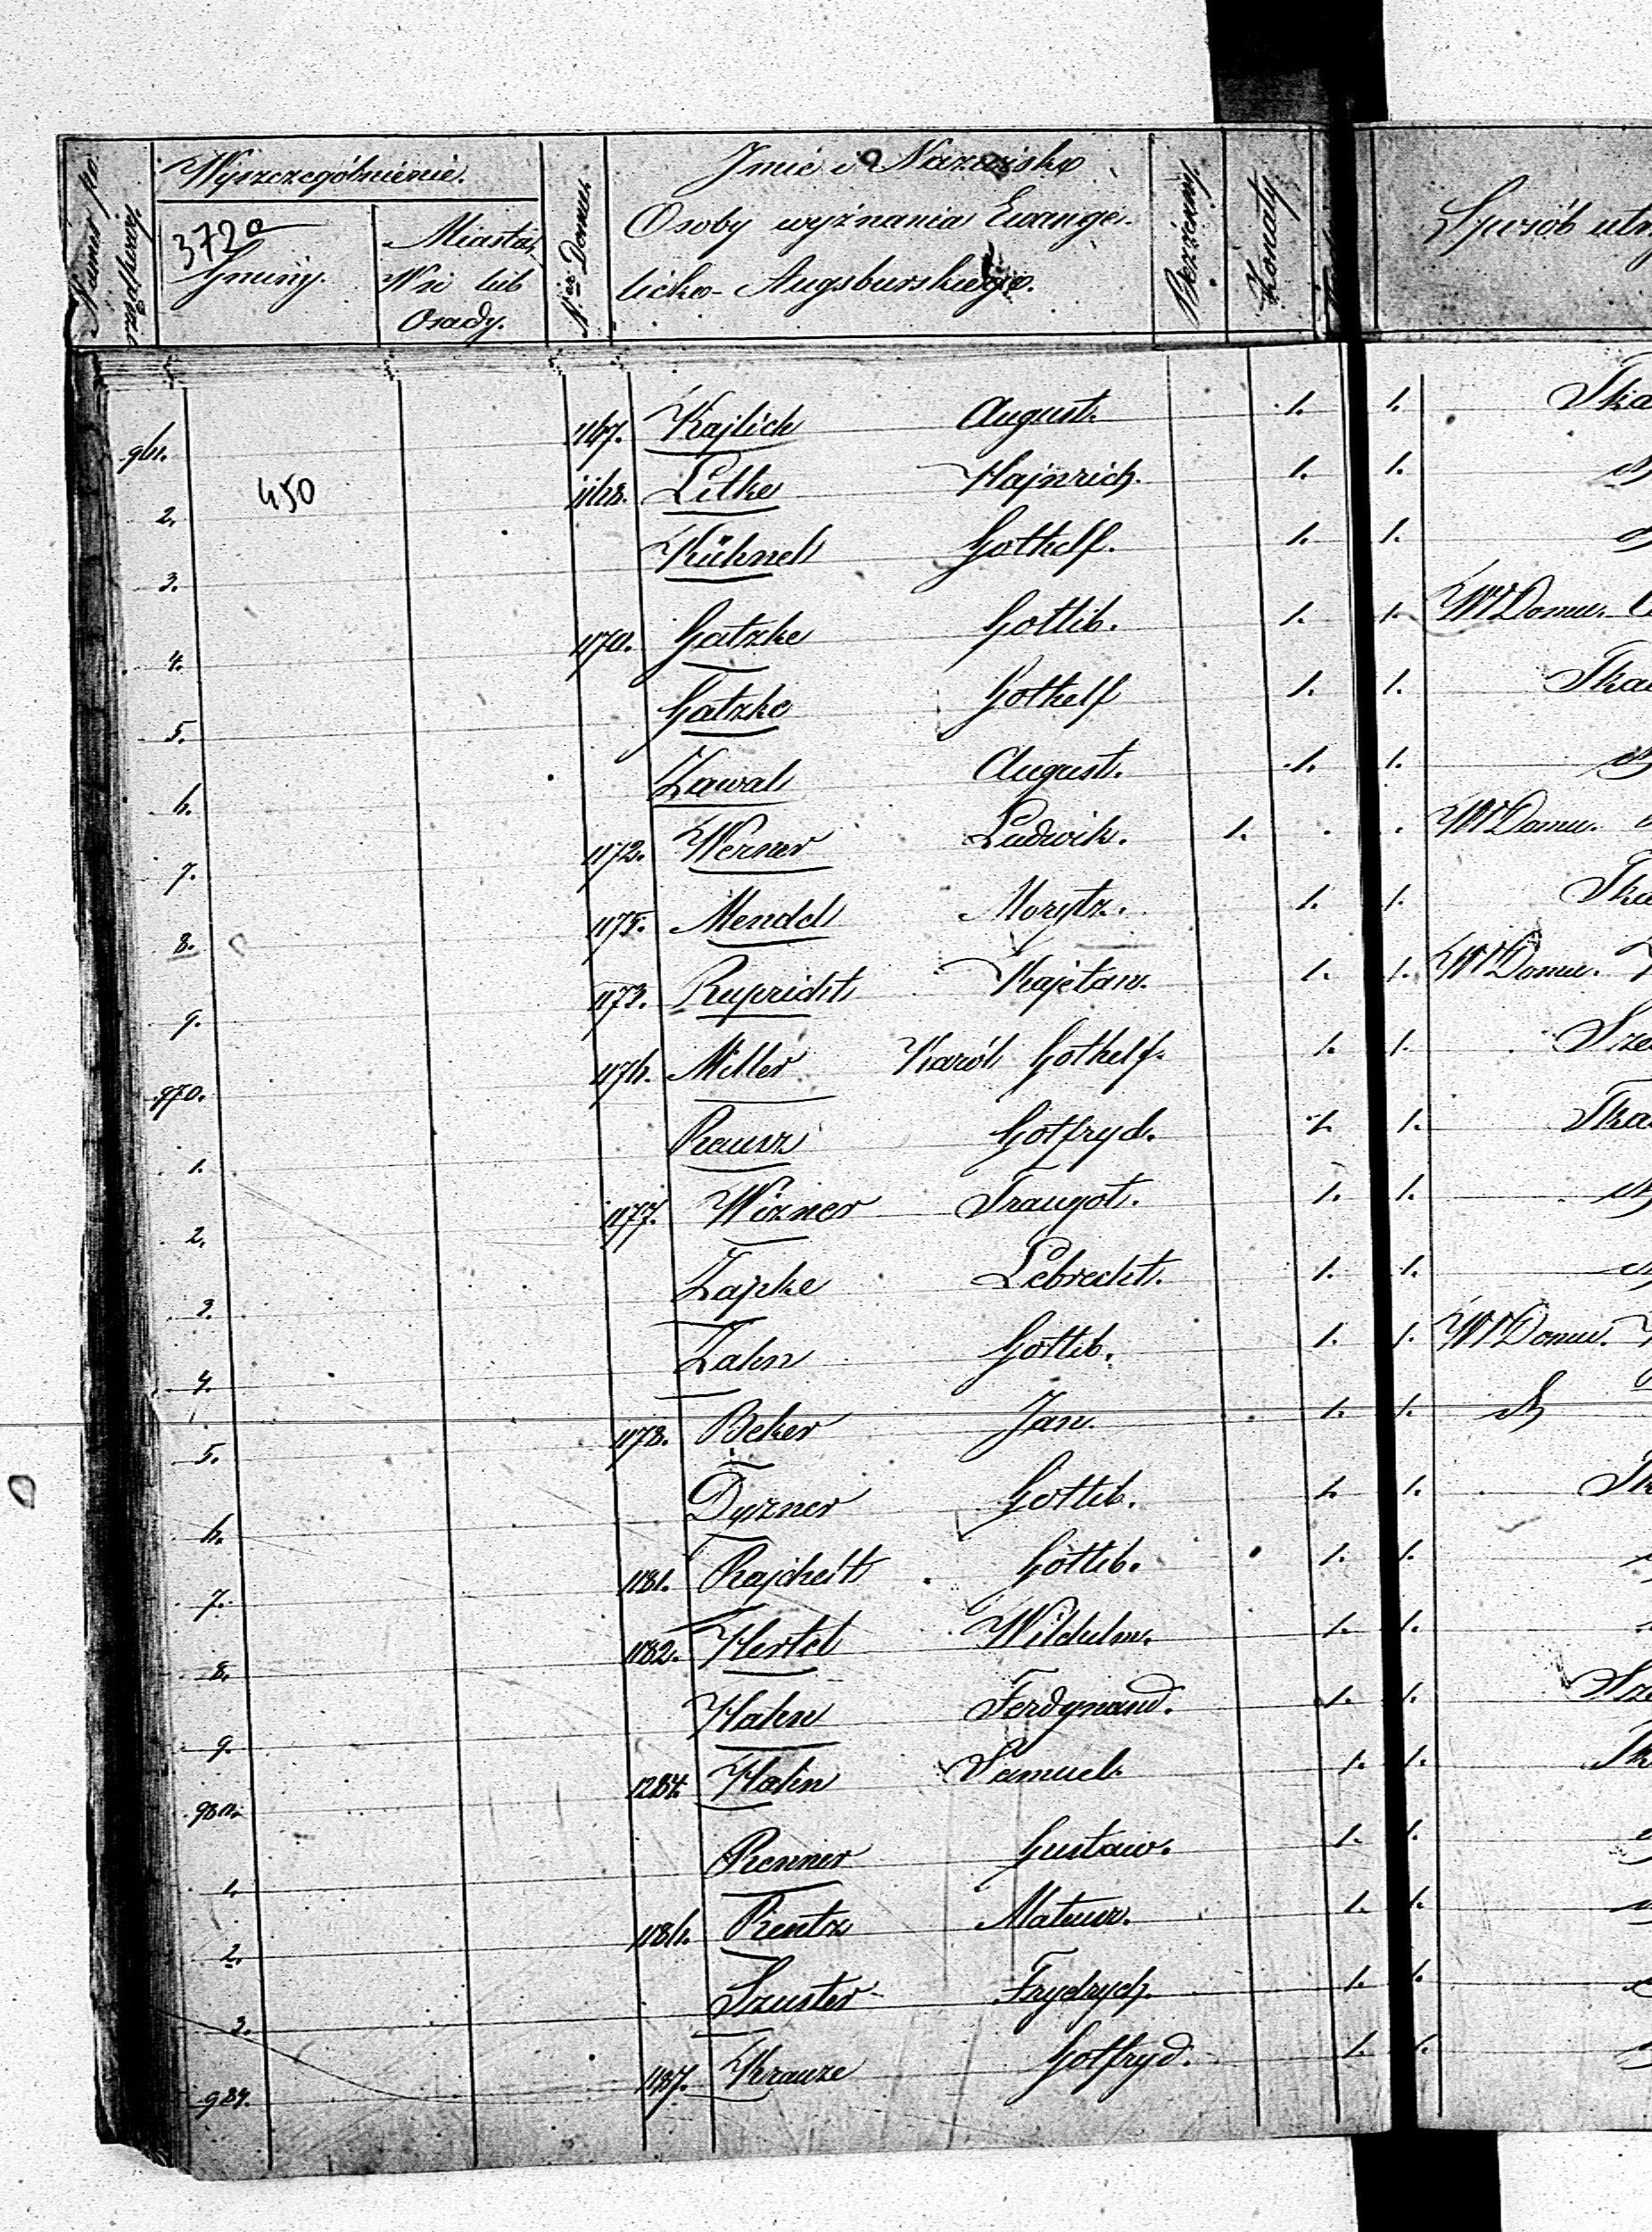 Numer po
rządkowy.
Wyszczególnienie.
372a
Gminy.
Miasta,
Wsi lub
Osady.
N-er Domu.
Jmie i Nazwisko
Osoby wyznania Ewange-
licko-Augsburskiego.
Bezżenny.
Żonaty
Sposób utrz
450
961. 1167. Kajlich August. 1. 1. Tka
2. 1168. Litke Hajnrich. 1. 1.
3. Kühnel Gothelf. 1. 1.
4. 1170. Gatzke Gottlib. 1. 1. W Domu.
5. Gatzke Gothelf 1. 1. Tka
6. Zawal August. 1. 1.
7. 1172. Werner Ludwik. 1. . . W Domu.
8. 1175. Mendel Morytz. 1. 1. Tka
9. 1173. Rupricht Kajetan. 1. 1. W Domu.
970. 1176. Miller Karól Gothelf. 1. 1. Sze
1. Rausz Gotfryd. 1. 1. Tka
2. 1177. Wizner Traugot. 1. 1.
3. Zapke Lebrecht. 1. 1.
4. Zahn Gottlib. 1. 1. W Domu.
5. 1178. Beker Jan. 1. 1.
6. Dyzner Gottlib. 1. 1. Tk
7. 1181. Rajchelt Gottlib. 1. 1.
8. 1182. Hertel Wilchelm. 1. 1.
9. Hahn Ferdynand. 1. 1. Sz
980. 1284. Hahn Samuel. 1. 1. Tk
1. Renner Gustaw. 1. 1.
2. 1186. Rentz Mateusz. 1. 1.
3. Szuster Frydrych. 1. 1.
984. 1187. Krauze Gotfryd. 1. 1.